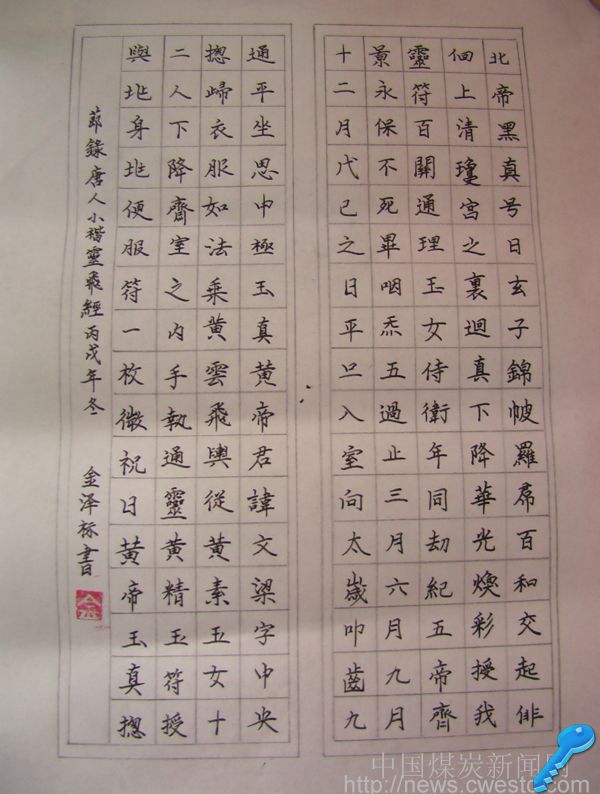 北帝黑真号曰玄子錦帔羅帬百和交起俳
佪上清瓊宮之裏迴真下降華光煥彩授我
靈符百關通理玉女侍衛年同劫紀五帝齊
景永保不死畢咽炁五過止三月六月九月
十二月戊己之日平旦入室向太嵗叩齒九
通平坐思中極玉真黄帝君諱文梁字中央
揔歸衣服如法乘黄雲飛輿從黄素玉女十
二人下降齋室之内手執通靈黄精玉符授
與兆身兆便服符一枚微祝曰黄帝玉真揔
節錄唐人小楷靈飛經丙戌年冬 金泽标書
金
中国煤炭新闻网
http://news.cwestc.com